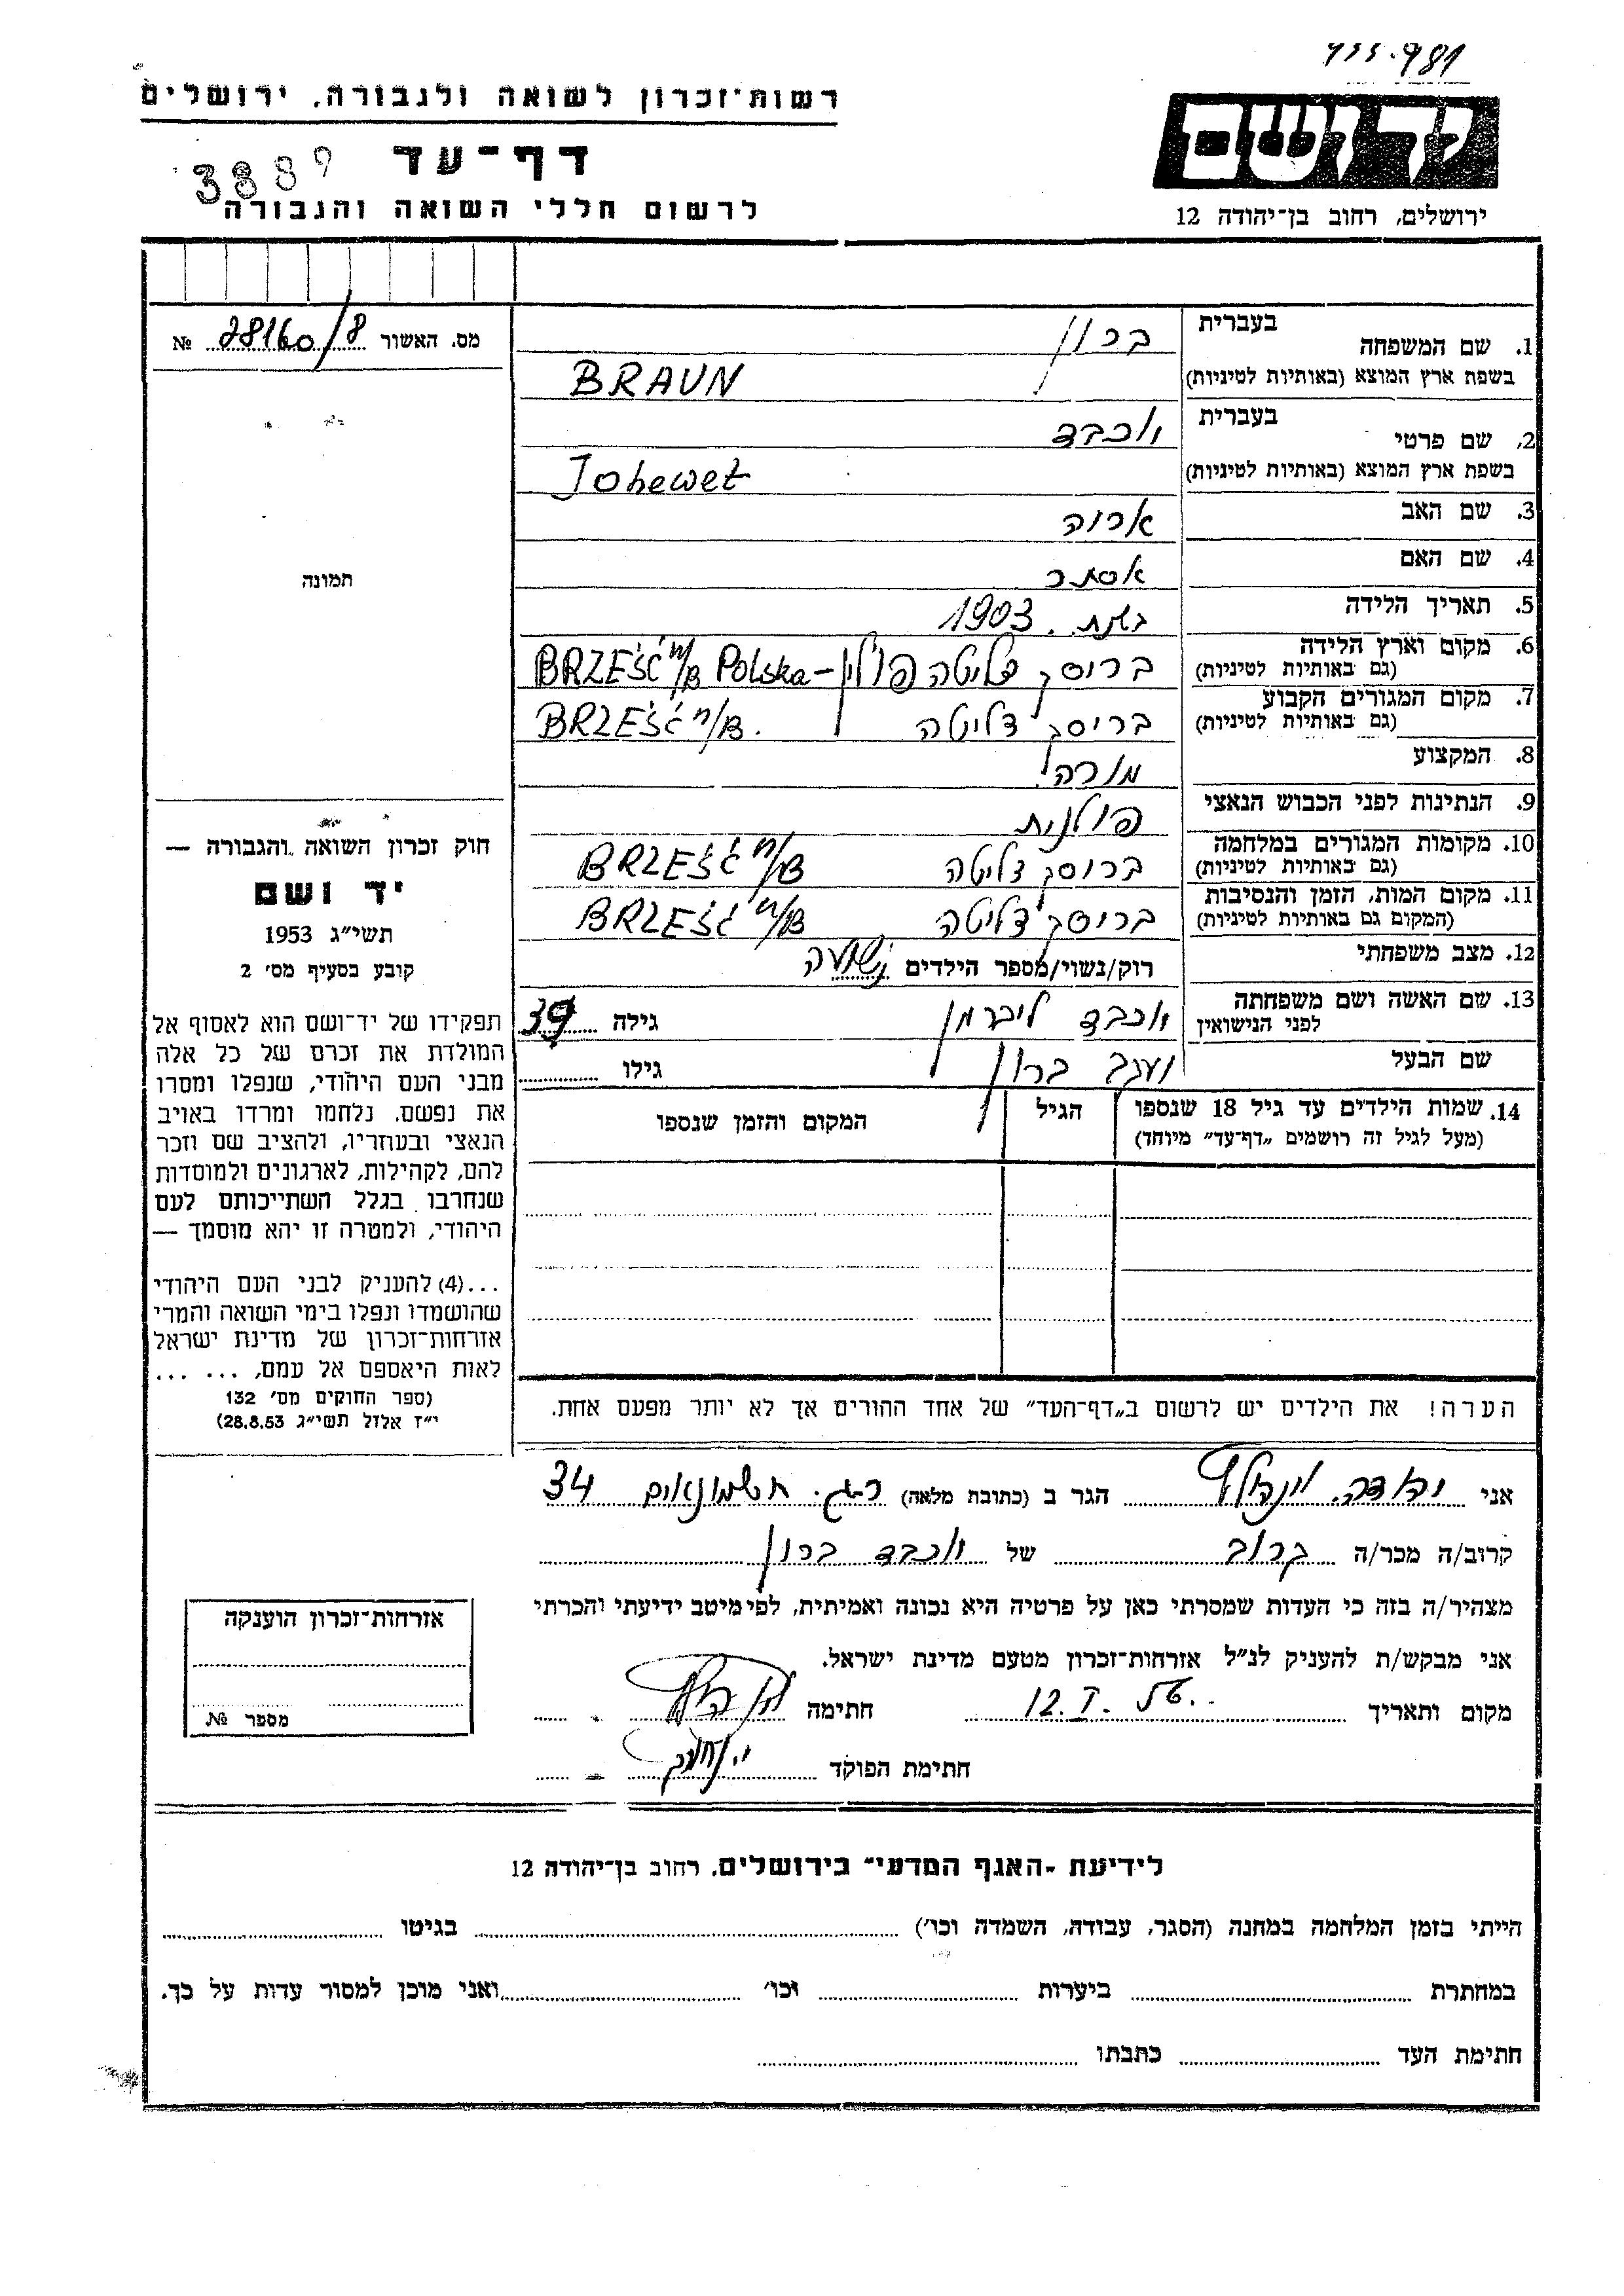 רשות־זכרון לשואה ולגבורה, ירושלים
דף־עד
3889
לרשום חללי השואה והגבורה
יד ושם
ירושלים, רחוב בן־יהודה 12
מס. האשור 28160/8 №
תמונה
חוק זכרון השואה והגבורה —
יד ושם
תשי"ג 1953
קובע בסעיף מס' 2
תפקידו של יד־ושם הוא לאסוף אל
המולדת את זכרם של כל אלה
מבני העם היהודי, שנפלו ומסרו
את נפשם, נלחמו ומרדו באויב
הנאצי ובעוזריו, ולהציב שם וזכר
להם, לקהילות, לארגונים ולמוסדות
שנחרבו בגלל השתייכותם לעם
היהודי, ולמטרה זו יהא מוסמך —
...(4) להעניק לבני העם היהודי
שהושמדו ונפלו בימי השואה והמרי
אזרחות־זכרון של מדינת ישראל
לאות היאספם אל עמם, ... ...
(ספר החוקים מס' 132
י"ז אלול תשי"ג 28.8.53)
1. שם המשפחה בעברית ברון
בשפת ארץ המוצא (באותיות לטיניות) BRAUN
2. שם פרטי בעברית יוכבד
בשפת ארץ המוצא (באותיות לטיניות) Johewet
3. שם האב אריה
4. שם האם אסתר
5. תאריך הלידה בשנת 1903
6. מקום וארץ הלידה (גם באותיות לטיניות) בריסק דליטה פולין – BRZEŚĆ n/B Polska
7. מקום המגורים הקבוע (גם באותיות לטיניות) בריסק דליטה BRZEŚĆ n/B.
8. המקצוע מורה
9. הנתינות לפני הכבוש הנאצי פולנית
10. מקומות המגורים במלחמה (גם באותיות לטיניות) בריסק דליטה BRZEŚĆ n/B
11. מקום המות, הזמן והנסיבות (המקום גם באותיות לטיניות) בריסק דליטה BRZEŚĆ n/B
12. מצב משפחתי רוק/נשוי/מספר הילדים נשואה
13. שם האשה ושם משפחתה לפני הנישואין יוכבד ליברמן גילה 39
שם הבעל יעקב ברון גילו
14. שמות הילדים עד גיל 18 שנספו (מעל לגיל זה רושמים "דף־עד" מיוחד) הגיל המקום והזמן שנספו
הערה! את הילדים יש לרשום ב"דף־העד" של אחד ההורים אך לא יותר מפעם אחת.
אני יהודה הגר ב (כתובת מלאה) חשמונאים 34
קרוב/ה מכר/ה קרוב של יוכבד ברון
מצהיר/ה בזה כי העדות שמסרתי כאן על פרטיה היא נכונה ואמיתית, לפי מיטב ידיעתי והכרתי
אני מבקש/ת להעניק לנ"ל אזרחות־זכרון מטעם מדינת ישראל.
מקום ותאריך 12.I.56 חתימה
חתימת הפוקד
אזרחות־זכרון הוענקה
מספר №
לידיעת ־האגף המדעי־ בירושלים, רחוב בן־יהודה 12
הייתי בזמן המלחמה במחנה (הסגר, עבודה, השמדה וכו') בגיטו
במחתרת ביערות וכו' ואני מוכן למסור עדות על כך.
חתימת העד כתבתו